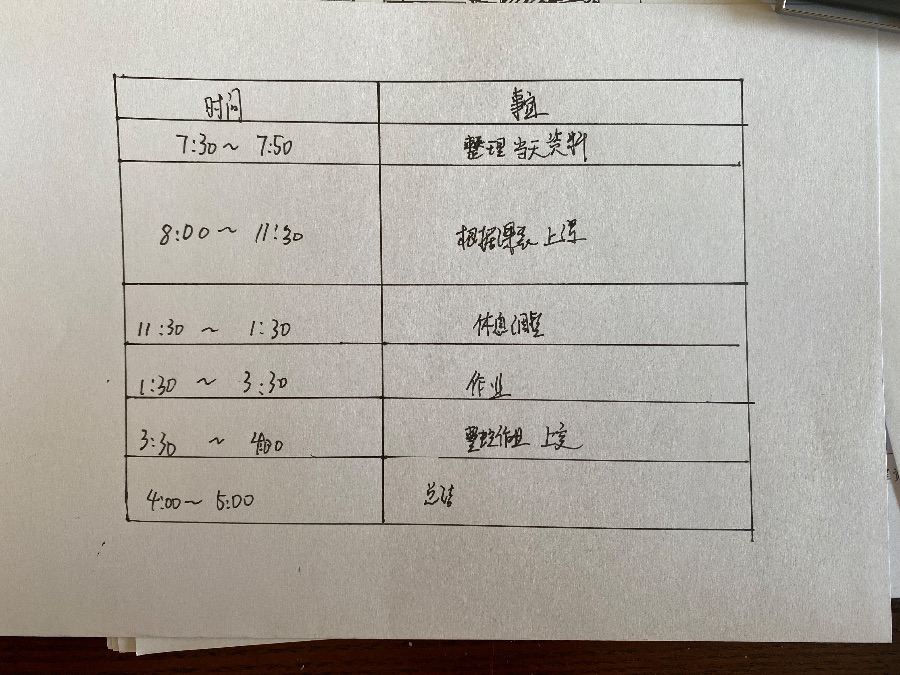 时间 事宜
7:30～ 7:50 整理当天资料
8:00～ 11:30 根据课表上课
11:30 ～ 1:30 休息调整
1:30 ～ 3:30 作业
3:30 ～ 4:00 整理作业 上交
4:00～ 5:00 总结